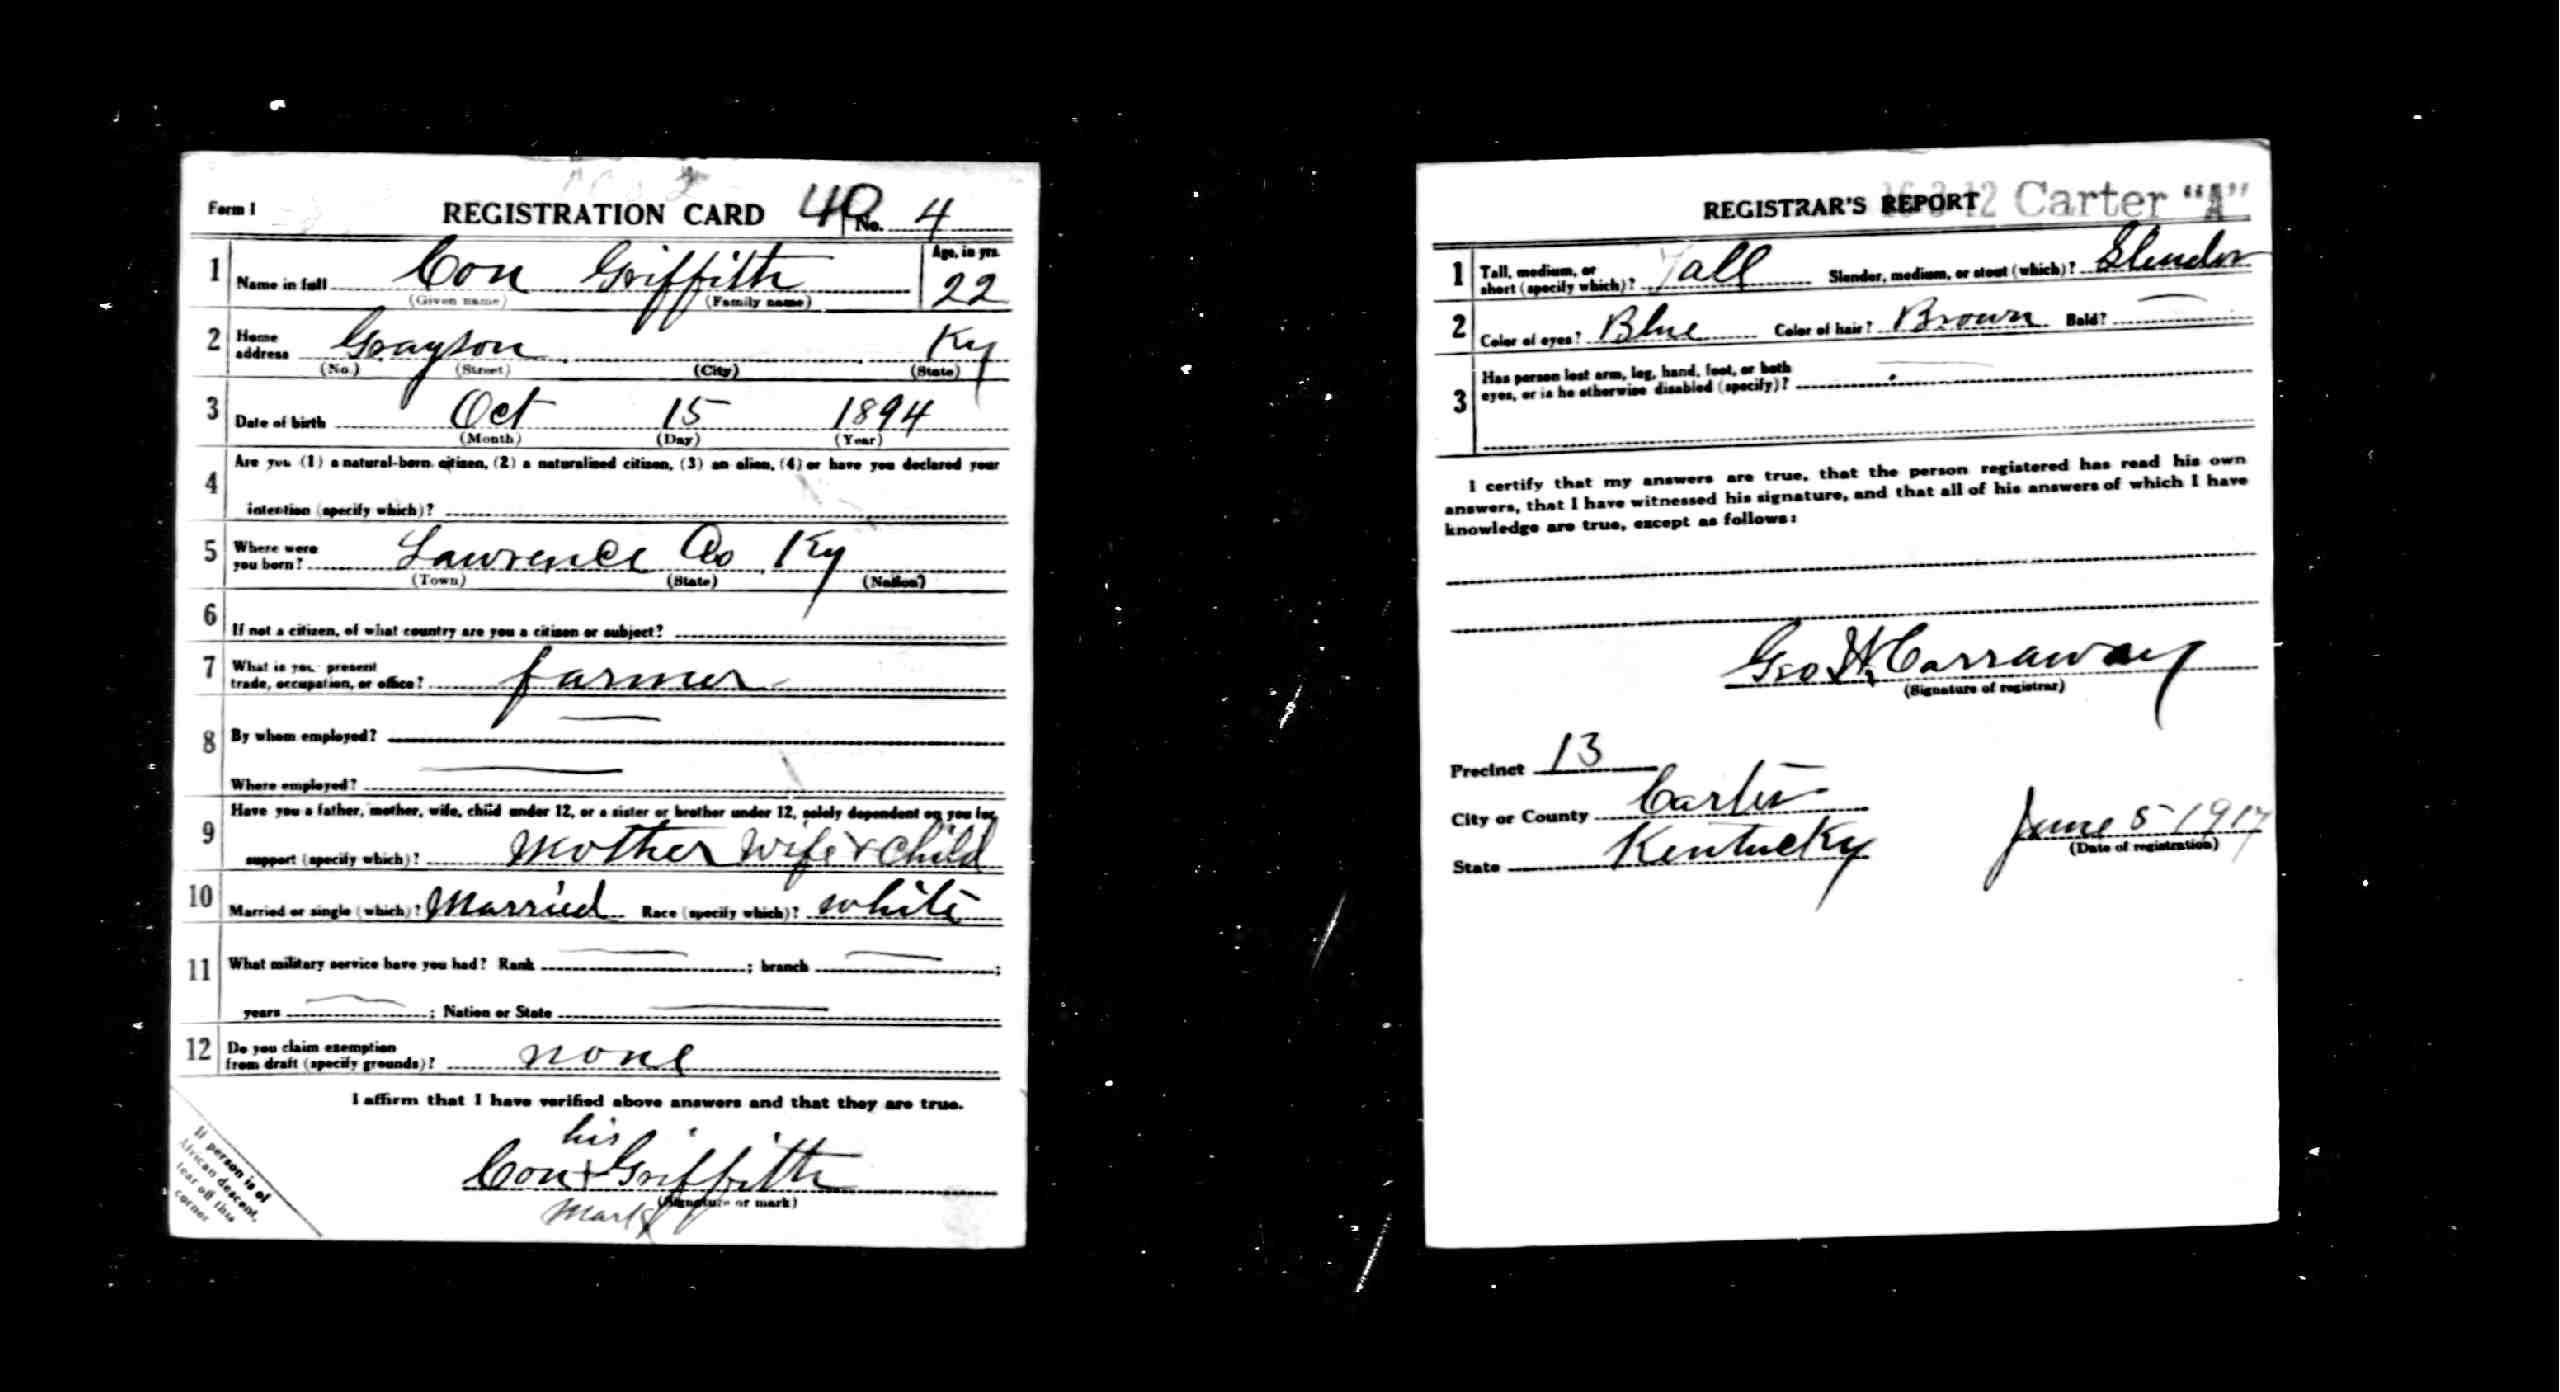 Form 1 REGISTRATION CARD 49 No. 4
1 Name in full Con Griffith Age, in yrs. 22
(Given name) (Family name)
2 Home address Grayson Ky
(No.) (Street) (City) (State)
3 Date of birth Oct 15 1894
(Month) (Day) (Year)
4 Are you (1) a natural-born citizen, (2) a naturalized citizen, (3) an alien, (4) or have you declared your
intention (specify which)?
5 Where were you born? Lawrence Co Ky
(Town) (State) (Nation)
6 If not a citizen, of what country are you a citizen or subject?
7 What is your present trade, occupation, or office? farmer
8 By whom employed? —
Where employed? —
9 Have you a father, mother, wife, child under 12, or a sister or brother under 12, solely dependent on you for
support (specify which)? Mother Wife & Child
10 Married or single (which)? Married Race (specify which)? white
11 What military service have you had? Rank — ; branch — ;
years — ; Nation or State —
12 Do you claim exemption from draft (specify grounds)? none
I affirm that I have verified above answers and that they are true.
his
Con + Griffith
(Signature or mark)
mark
If person is of
African descent,
tear off this
corner
REGISTRAR'S REPORT 16-3-12 Carter "A"
1 Tall, medium, or short (specify which)? Tall Slender, medium, or stout (which)? Slender
2 Color of eyes? Blue Color of hair? Brown Bald? —
3 Has person lost arm, leg, hand, foot, or both
eyes, or is he otherwise disabled (specify)? —
I certify that my answers are true, that the person registered has read his own
answers, that I have witnessed his signature, and that all of his answers of which I have
knowledge are true, except as follows:
Geo H. Carraway
(Signature of registrar)
Precinct 13
City or County Carter
State Kentucky June 5 1917
(Date of registration)